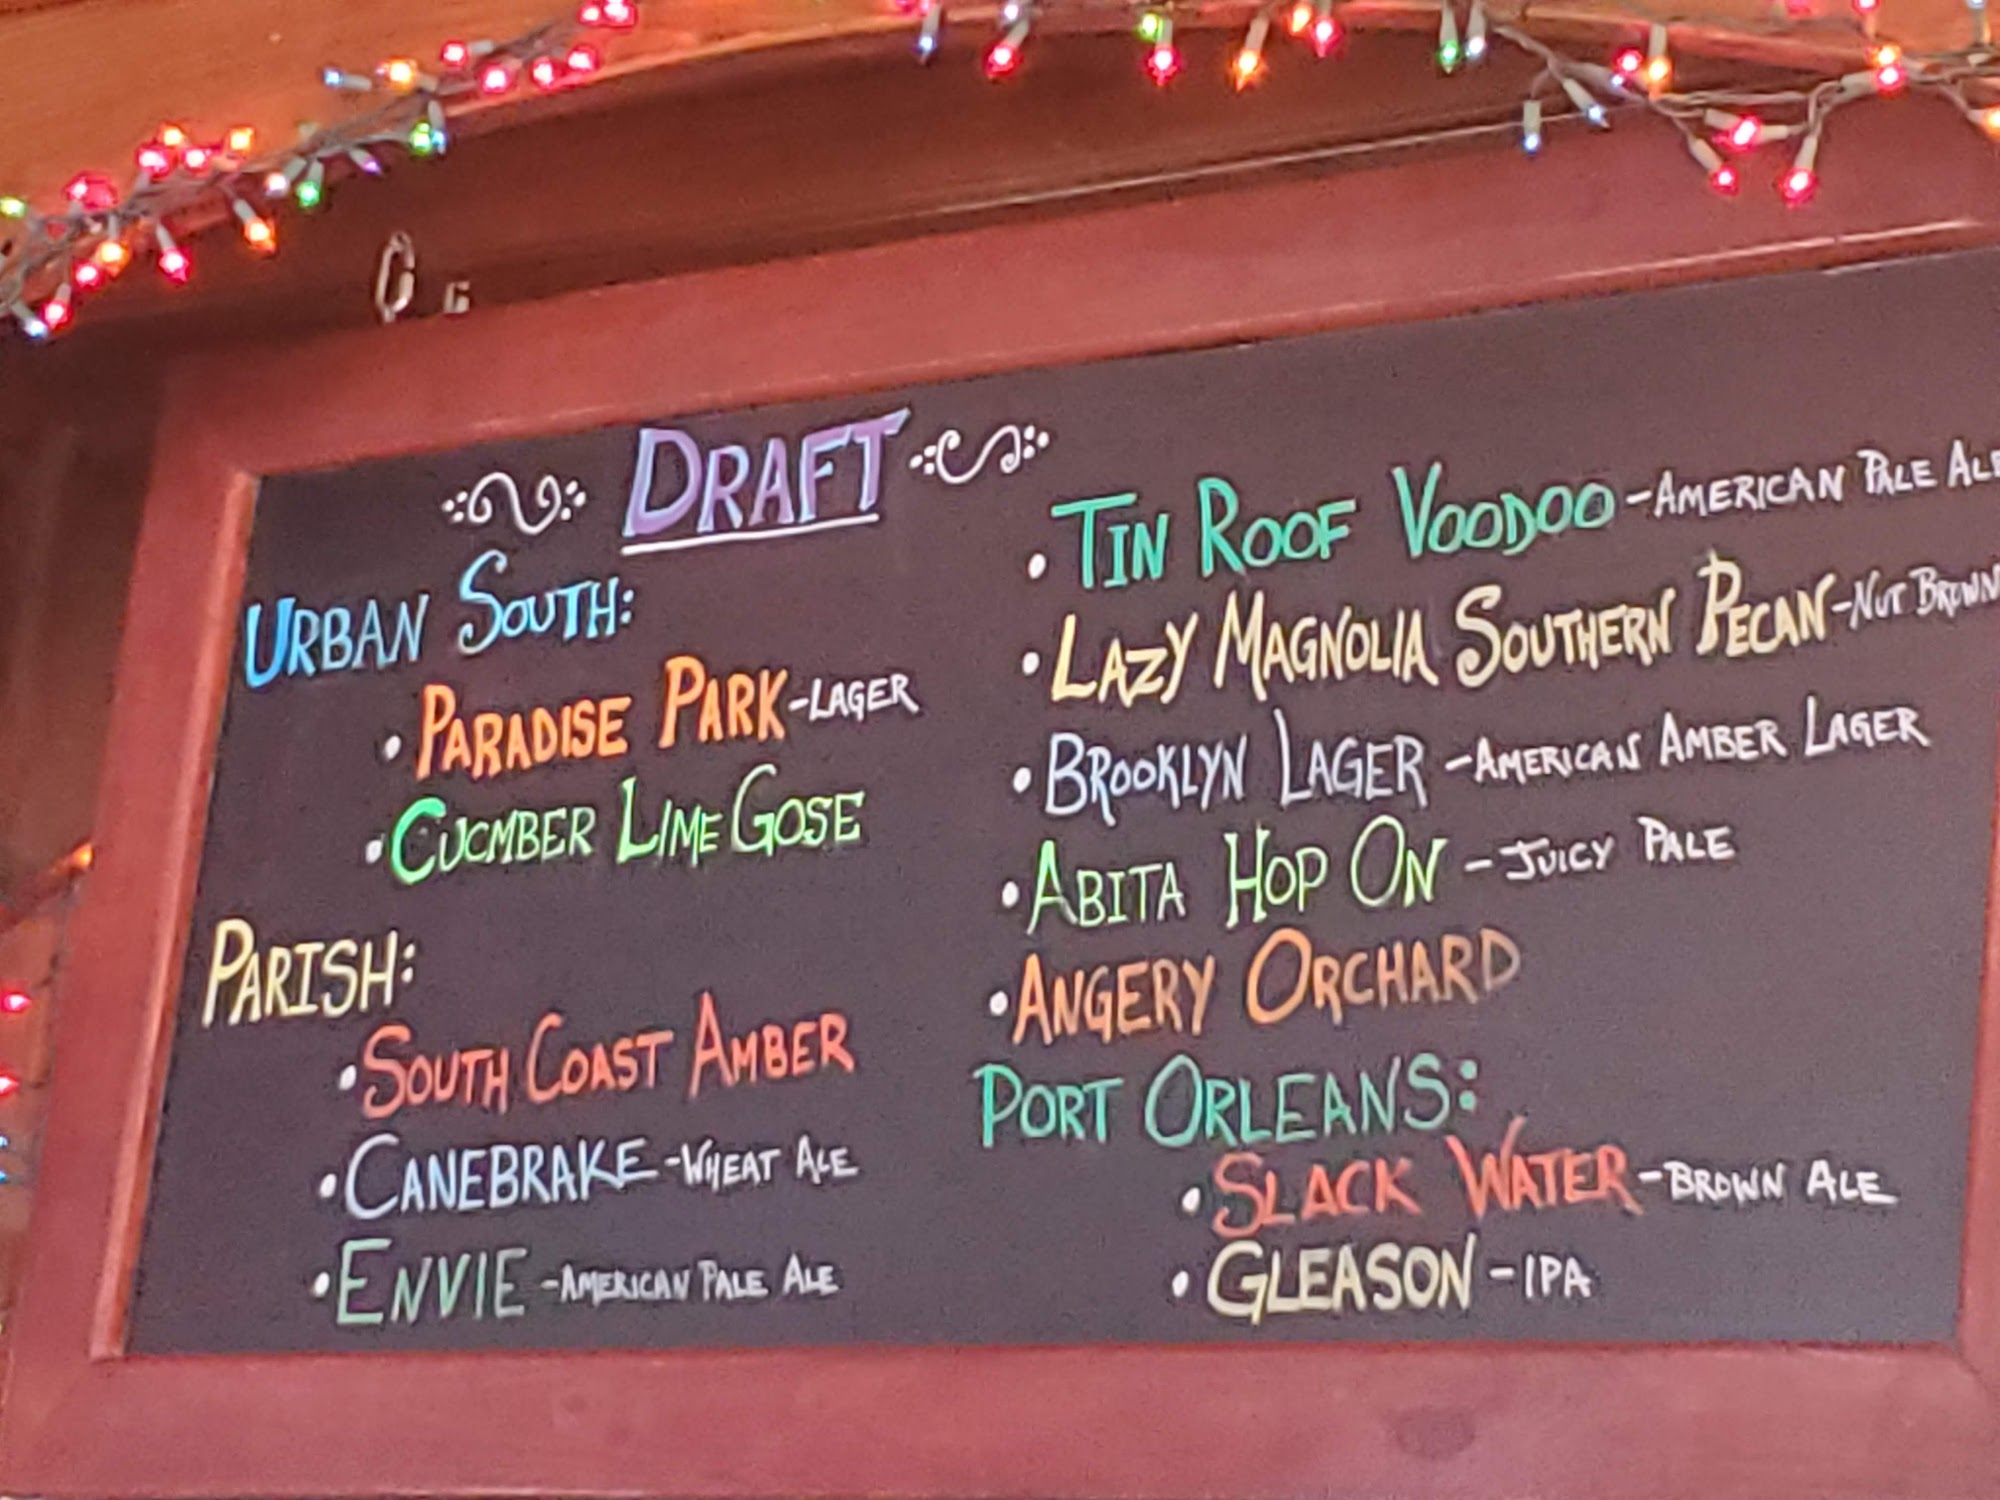 DRAFT
URBAN SOUTH:
• PARADISE PARK - LAGER
• CUCMBER LIME GOSE
PARISH:
• SOUTH COAST AMBER
• CANEBRAKE - WHEAT ALE
• ENVIE - AMERICAN PALE ALE
• TIN ROOF VOODOO - AMERICAN PALE ALE
• LAZY MAGNOLIA SOUTHERN PECAN - NUT BROWN
• BROOKLYN LAGER - AMERICAN AMBER LAGER
• ABITA HOP ON - JUICY PALE
• ANGERY ORCHARD
PORT ORLEANS:
• SLACK WATER - BROWN ALE
• GLEASON - IPA